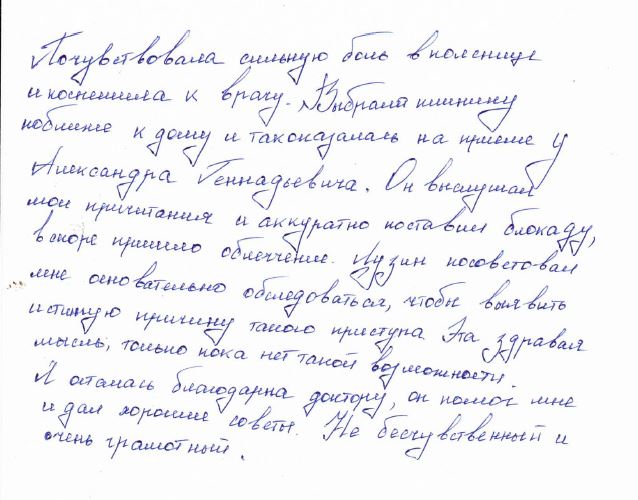 Почувствовала сильную боль в пояснице
и поспешила к врачу. Выбрала клинику
поближе к дому и так оказалась на приеме у
Александра Геннадьевича. Он выслушал
мои причитания и аккуратно поставил блокаду,
вскоре пришло облегчение. Лузин посоветовал
мне основательно обследоваться, чтобы выявить
истиную причину такого приступа. Эта здравая
мысль, только пока нет такой возможности.
Я осталась благодарна доктору, он помог мне
и дал хорошие советы. Не бесчувственный и
очень грамотный.